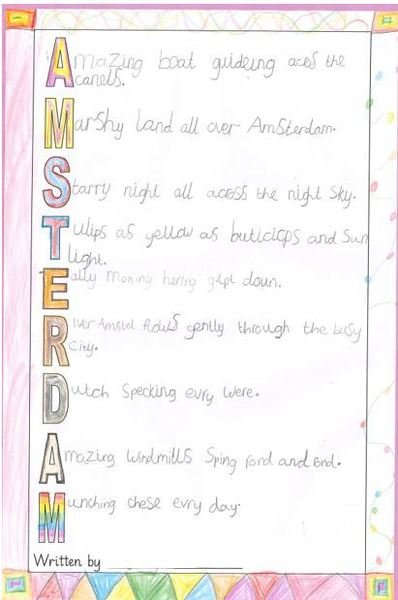 Amazing boat guideing aces the
canels.
Marshy land all over Amsterdam.
Starry night all across the night Sky.
Tulips as yellow as buticiops and Sun
light.
Eally moning hering down.
River Amstel flows gently through the busy
City.
Dutch Specking evry were.
Amazing windmills Sping rond and rond.
Munching chese evry day.
Written by